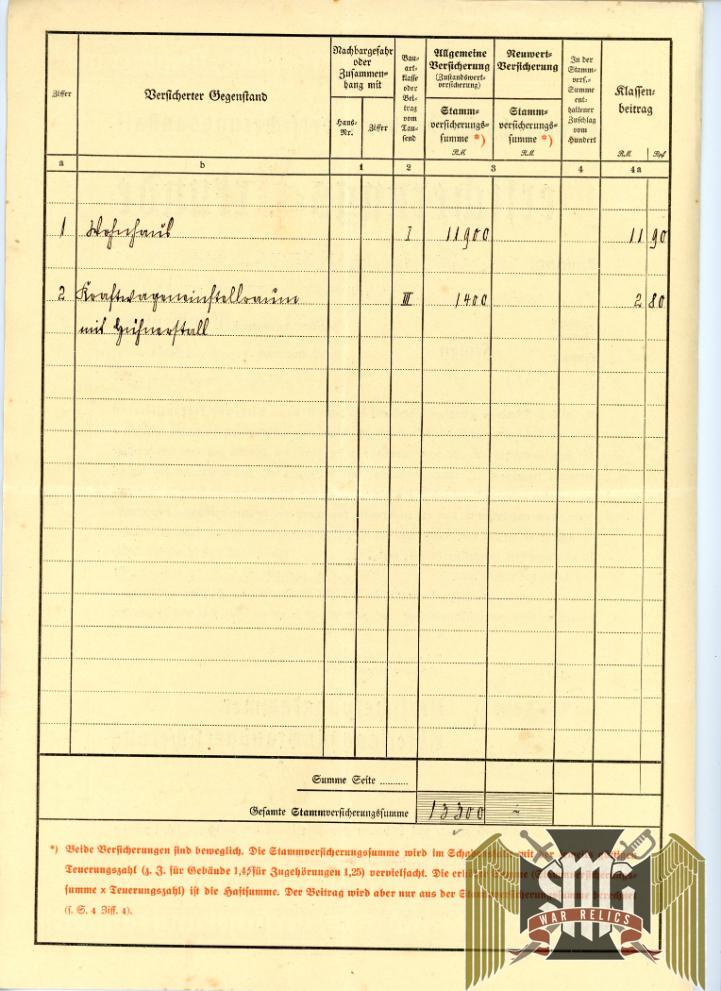 Ziffer
Versicherter Gegenstand
Nachbargefahr
oder
Zusammen-
hang mit
Haus-
Nr.
Ziffer
Bau-
art-
klasse
oder
Bei-
trag
vom
Tau-
send
Allgemeine
Versicherung
(Zustandswert-
versicherung)
Stamm-
versicherungs-
summe *)
RM.
Neuwert-
Versicherung
Stamm-
versicherungs-
summe *)
RM.
In der
Stamm-
vers.-
Summe
ent-
haltener
Zuschlag
vom
Hundert
Klassen-
beitrag
RM. Rpf
a b 1 2 3 4 4a
1 Wohnhaus I 11900 11 90
2 Kraftwageneinstellraum III 1400 2 80
mit Hühnerstall
Summe Seite ..........
Gesamte Stammversicherungssumme 13300 -
*) Beide Versicherungen sind beweglich. Die Stammversicherungssumme wird im mit der
Teuerungszahl (z. Z. für Gebäude 1,45 für Zugehörungen 1,25) vervielfacht. Die
summe x Teuerungszahl) ist die Haftsumme. Der Beitrag wird aber nur aus der Stammversicherungssumme berechnet
(s. S. 4 Ziff. 4).
WAR RELICS